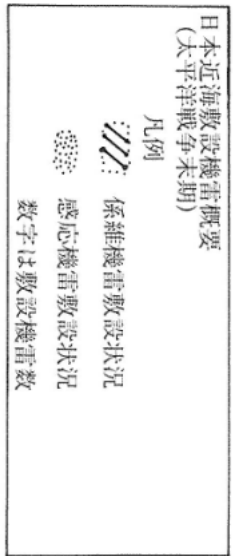 日本近海敷設機雷概要
(太平洋戦争末期)
凡例
係維機雷敷設状況
感応機雷敷設状況
数字は敷設機雷数